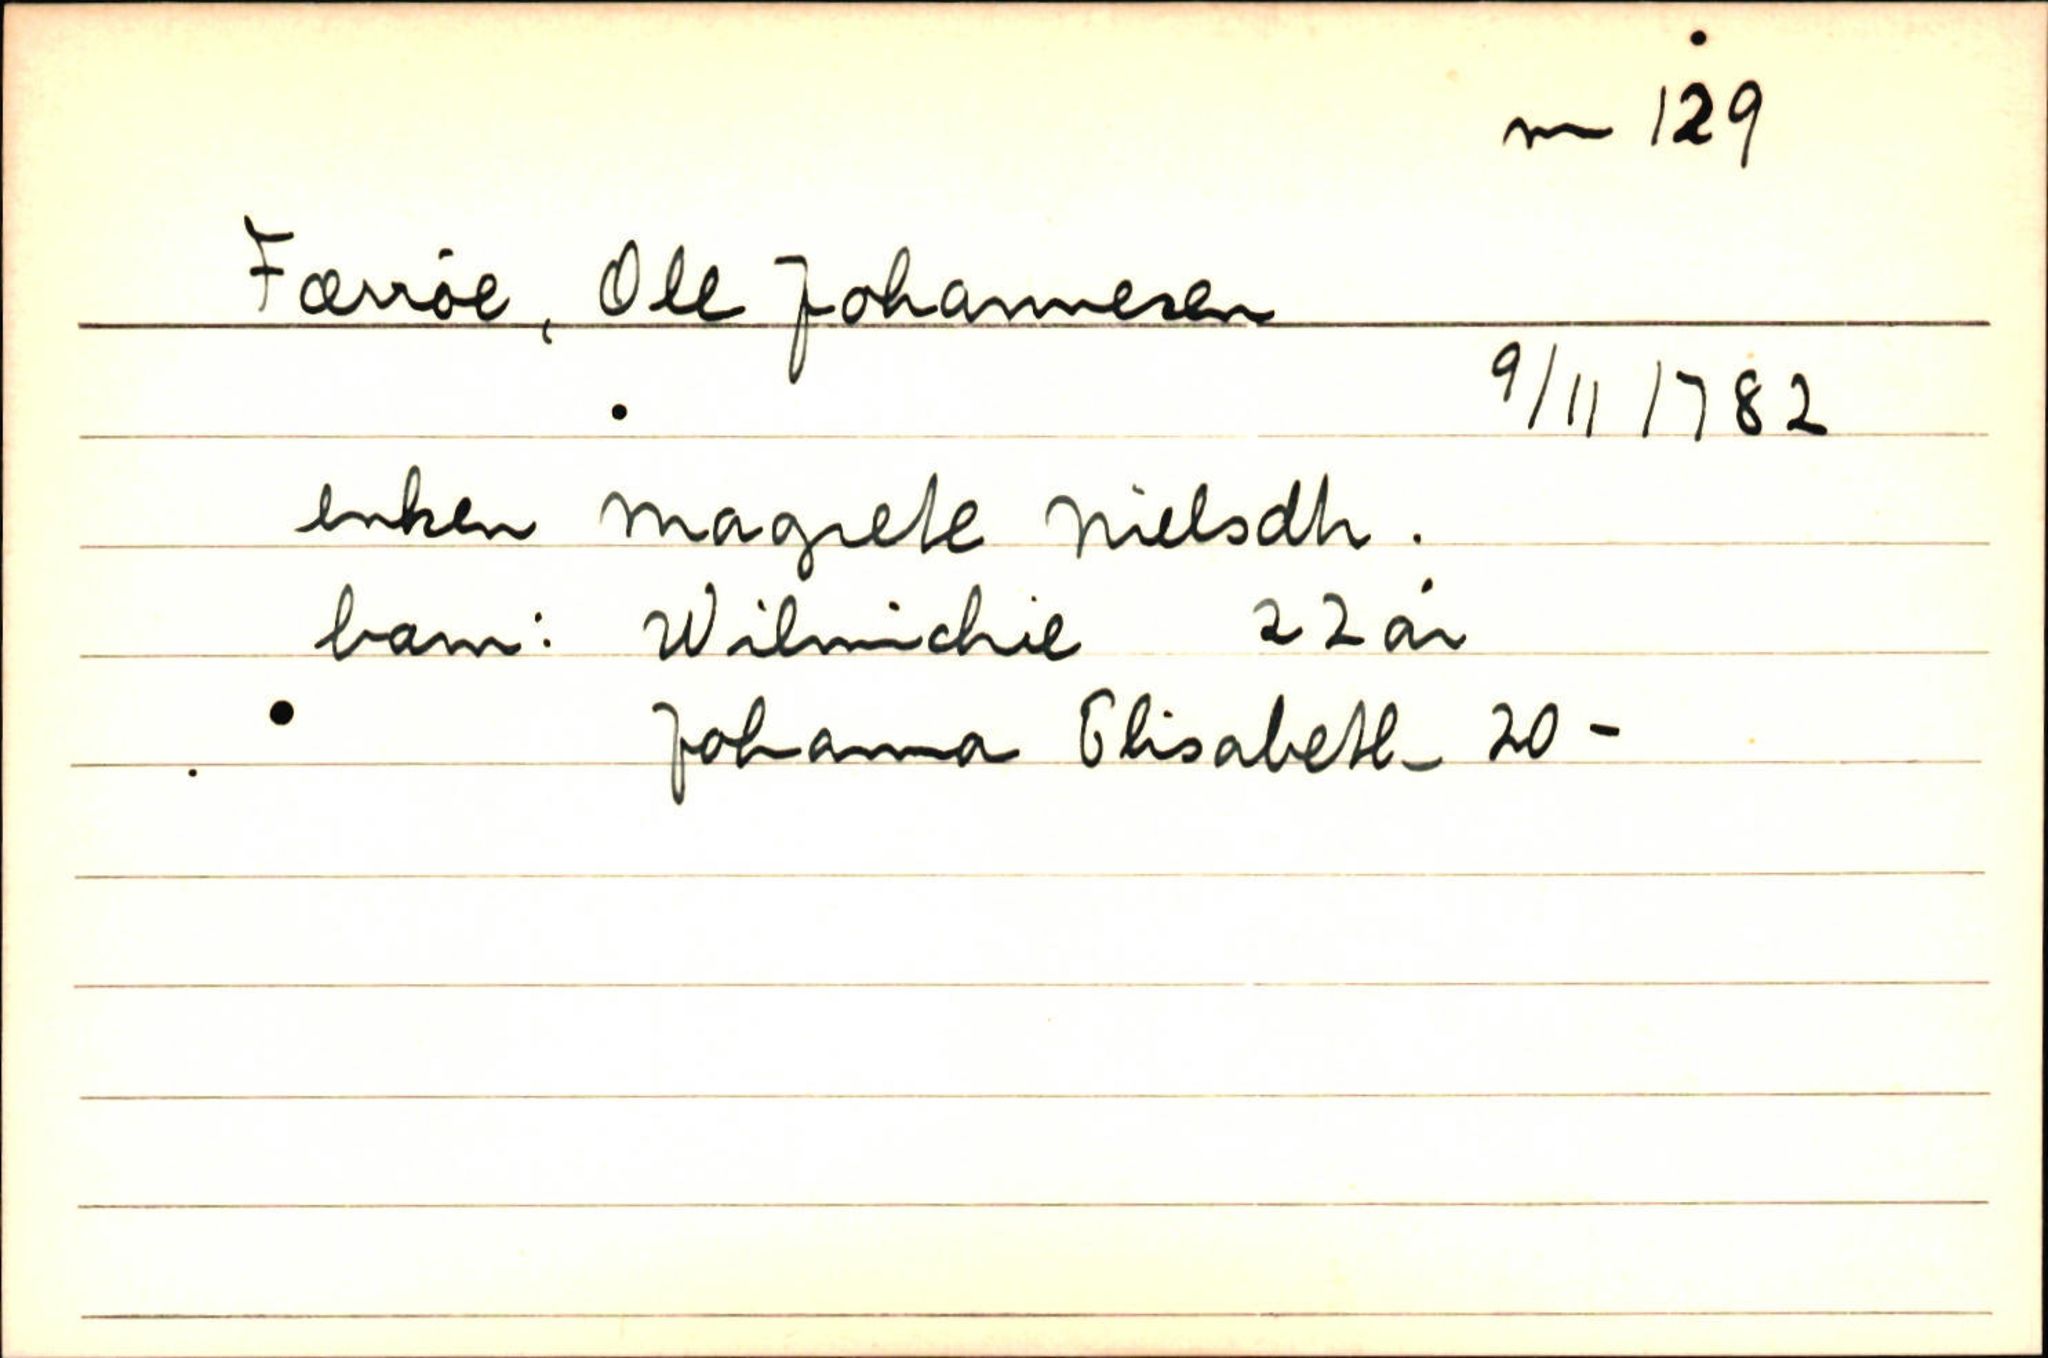 nr 129
Færröe, Ole Johannesen
9/11 1782
enken Magrete Nielsdtr.
barn: Wilmichie 22 år
Johanna Elisabeth 20 -